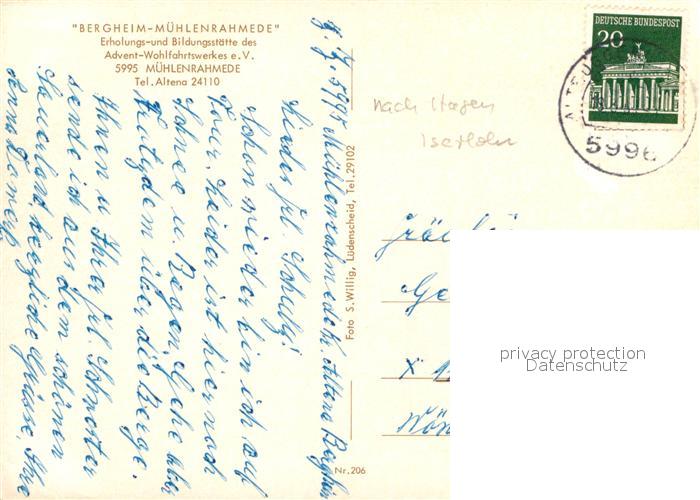 "BERGHEIM-MÜHLENRAHMEDE"
Erholungs-und Bildungsstätte des
Advent-Wohlfahrtswerkes e.V.
5995 MÜHLENRAHMEDE
Tel. Altena 24110
5995 Mühlenrahmede k. Altena Bergheim
Liebes frl. Schulz!
Schon wieder bin ich auf
Tour, leider ist hier noch
Schnee u. Regen. Gehe aber
trotzdem über die Berge.
Ihnen u Ihrer frl. Schwester
sende ich aus dem schönen
Sauerland, herzliche Grüsse, Ihre
Foto S. Willig, Lüdenscheid, Tel. 29102
Nr. 206
nach Hagen
Iserlohn
DEUTSCHE BUNDESPOST
20
5996
privacy protection
Datenschutz